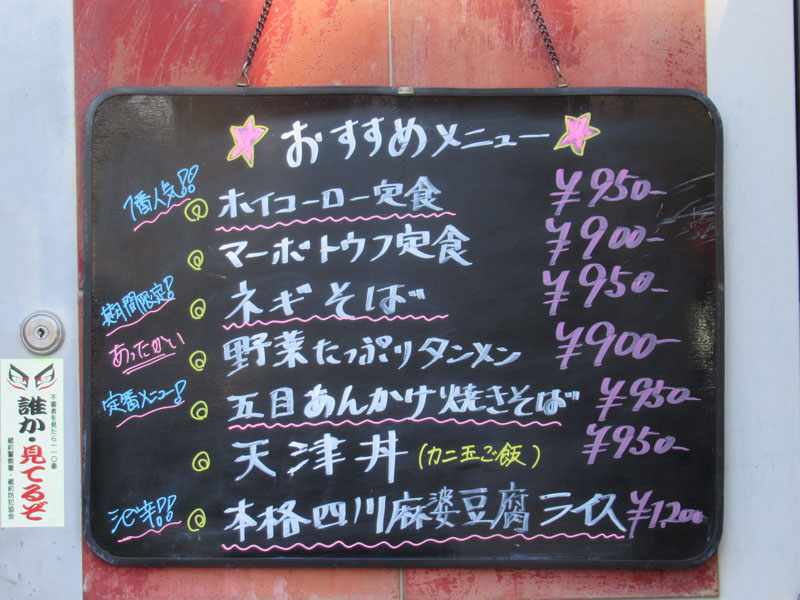 おすすめメニュー
1番人気!! ホイコーロー定食 ¥950-
マーボトウフ定食 ¥900-
期間限定! ネギそば ¥950-
あったかい 野菜たっぷりタンメン ¥900-
定番メニュー! 五目あんかけ焼きそば ¥950-
天津丼(カニ玉ご飯) ¥950-
シビ辛!! 本格四川麻婆豆腐ライス ¥1,200
不審者を見たら一一〇番
誰か・見てるぞ
蔵前警察署・蔵前防犯協会